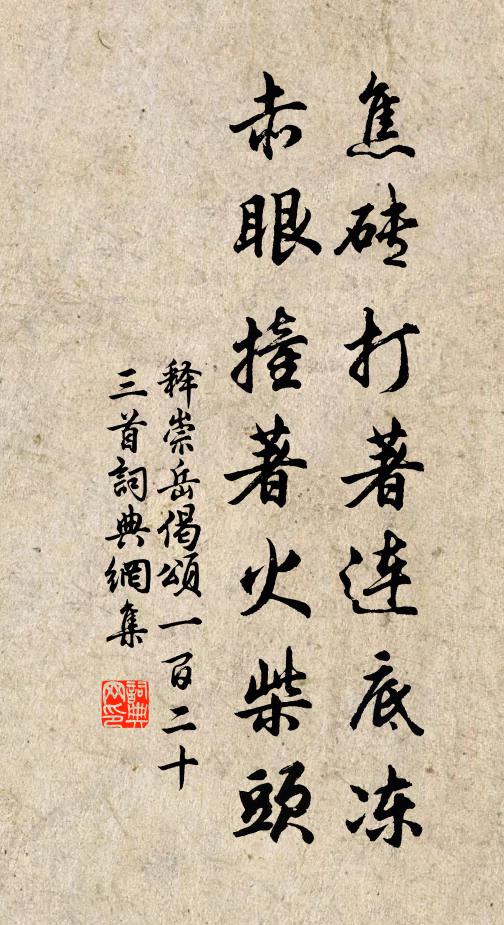 焦砖打著连底冻
赤眼撞著火柴头
释崇岳偈颂一百二十
三首詞典網集
詞典
网印